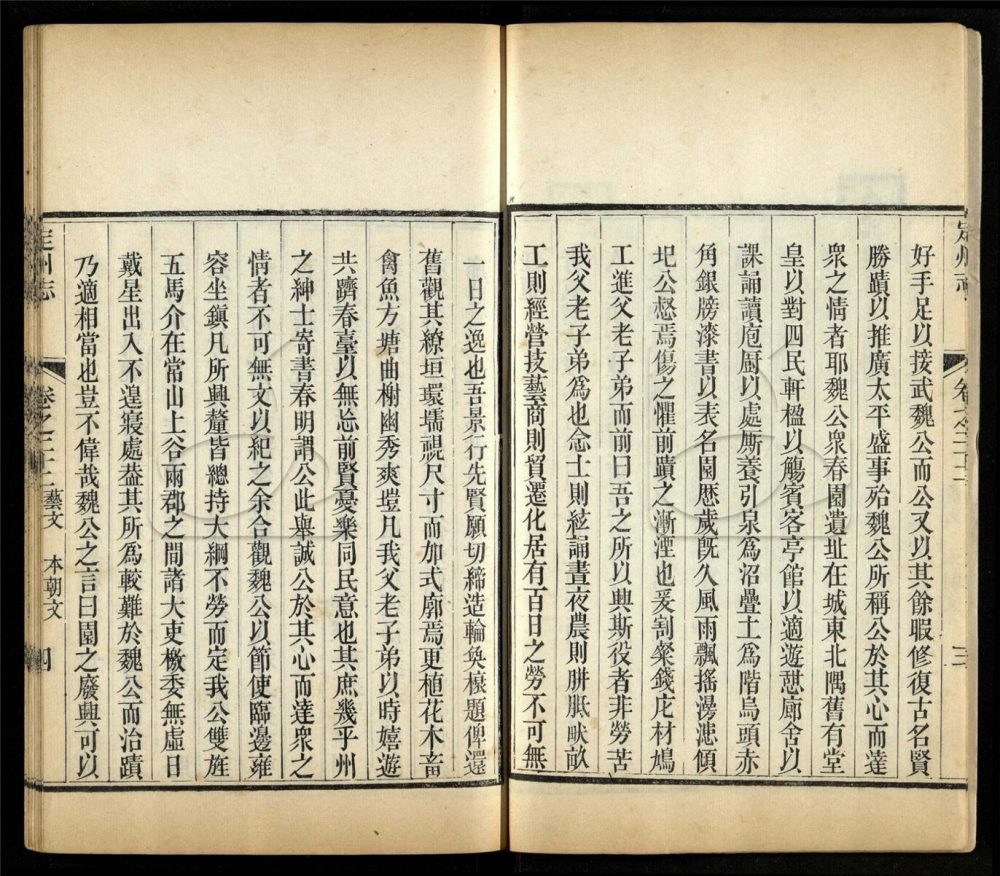 定州志
卷之二十二
三
好手足以接武魏公而公又以其餘暇修復古名賢
勝蹟以推廣太平盛事殆魏公所稱公於其心而達
衆之情者耶魏公衆春園遺址在城東北隅舊有堂
皇以對四民軒楹以觴賓客亭館以適遊憩廊舍以
課誦讀庖厨以處厮養引泉爲沼疊土爲階烏頭赤
角銀牓漆書以表名園歷歲旣久風雨飄搖漫漶傾
圯公惄焉傷之懼前蹟之漸湮也爰割粲錢庀材鳩
工進父老子弟而前曰吾之所以興斯役者非勞苦
我父老子弟爲也念士則絃誦晝夜農則胼胝畎畝
工則經營技藝商則貿遷化居有百日之勞不可無
一日之逸也吾景行先賢願切締造輪奐榱題俾還
舊觀其繚垣環壖視尺寸而加式廓焉更植花木畜
禽魚方塘曲榭幽秀爽塏凡我父老子弟以時嬉遊
共躋春臺以無忘前賢憂樂同民意也其庶幾乎州
之紳士寄書春明謂公此舉誠公於其心而達衆之
情者不可無文以紀之余合觀魏公以節使臨邊雍
容坐鎮凡所興釐皆總持大綱不勞而定我公雙旌
五馬介在常山上谷兩郡之間諸大吏檄委無虛日
戴星出入不遑寢處葢其所爲較難於魏公而治蹟
乃適相當也豈不偉哉魏公之言曰園之廢興可以
定州志
卷之二十二
藝文 本朝文
四